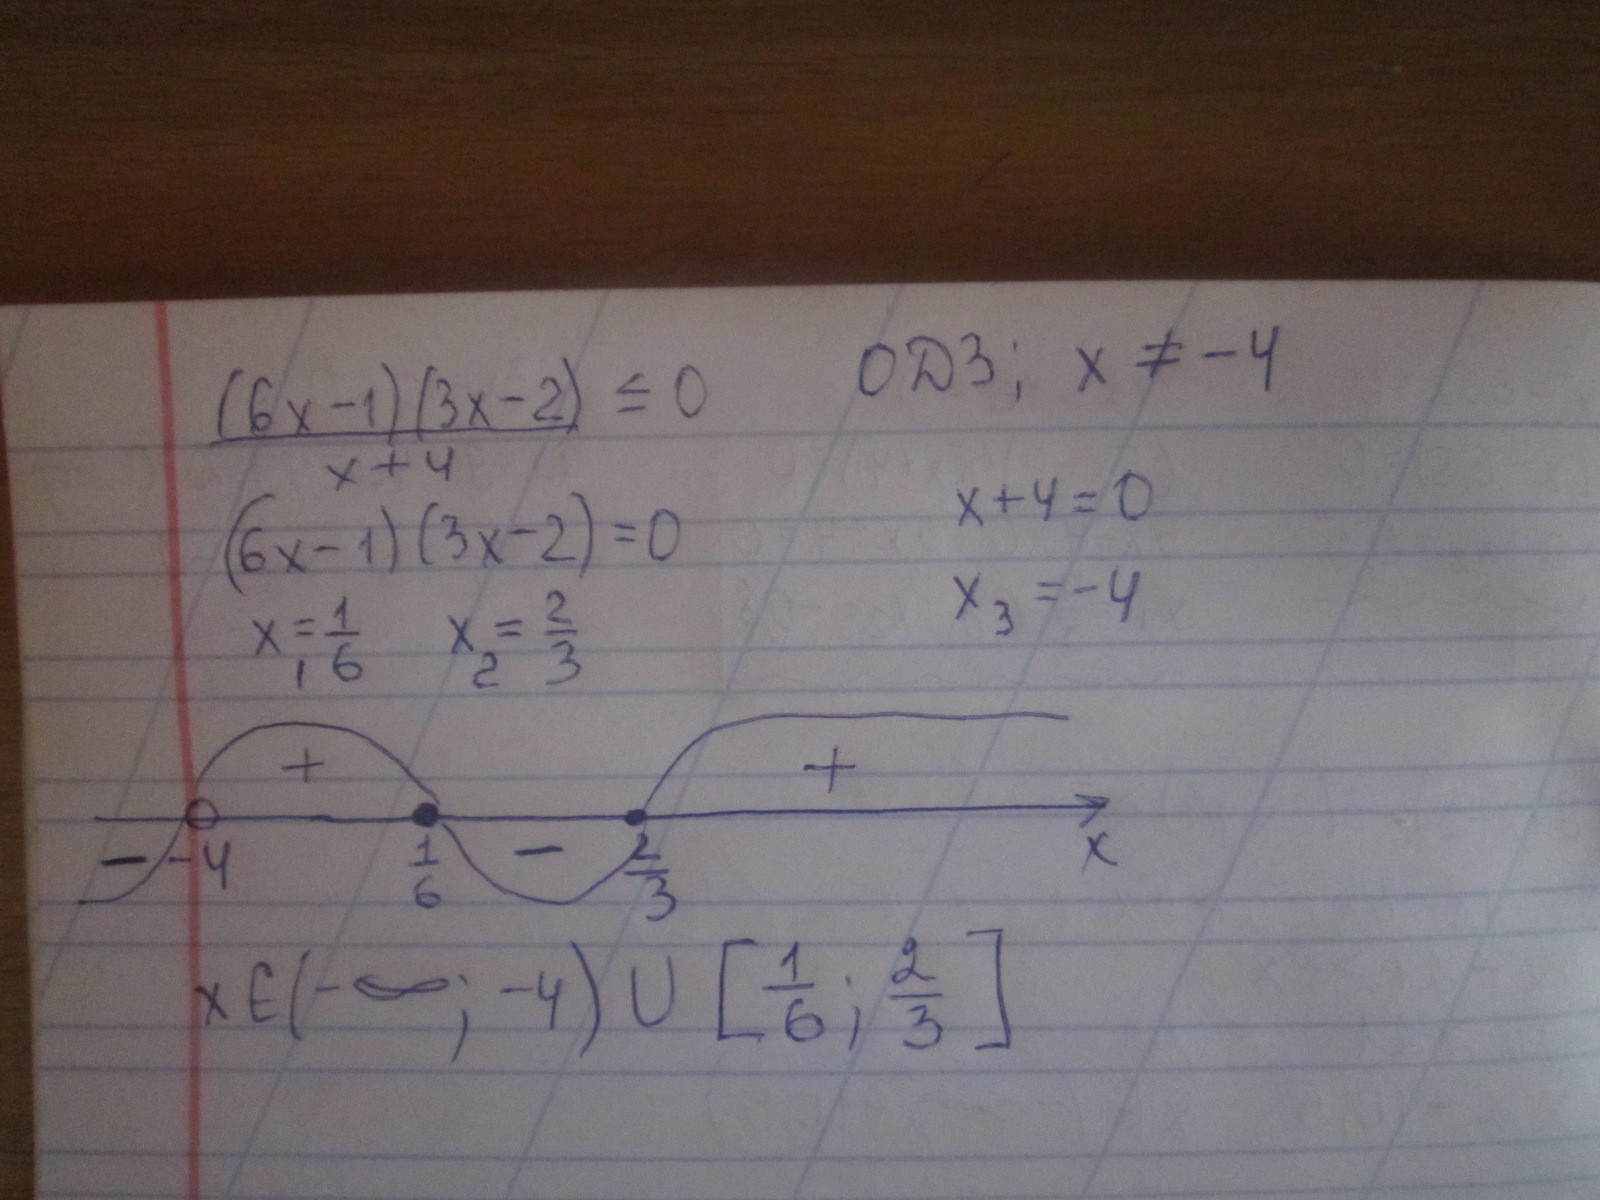 (6x-1)(3x-2)/x+4 ≤ 0
ОДЗ; x ≠ -4
(6x-1)(3x-2)=0
x+4=0
x₁=1/6 x₂=2/3
x₃=-4
+ +
- -4 1/6 - 2/3 x
x∈(-∞; -4) ∪ [1/6; 2/3]